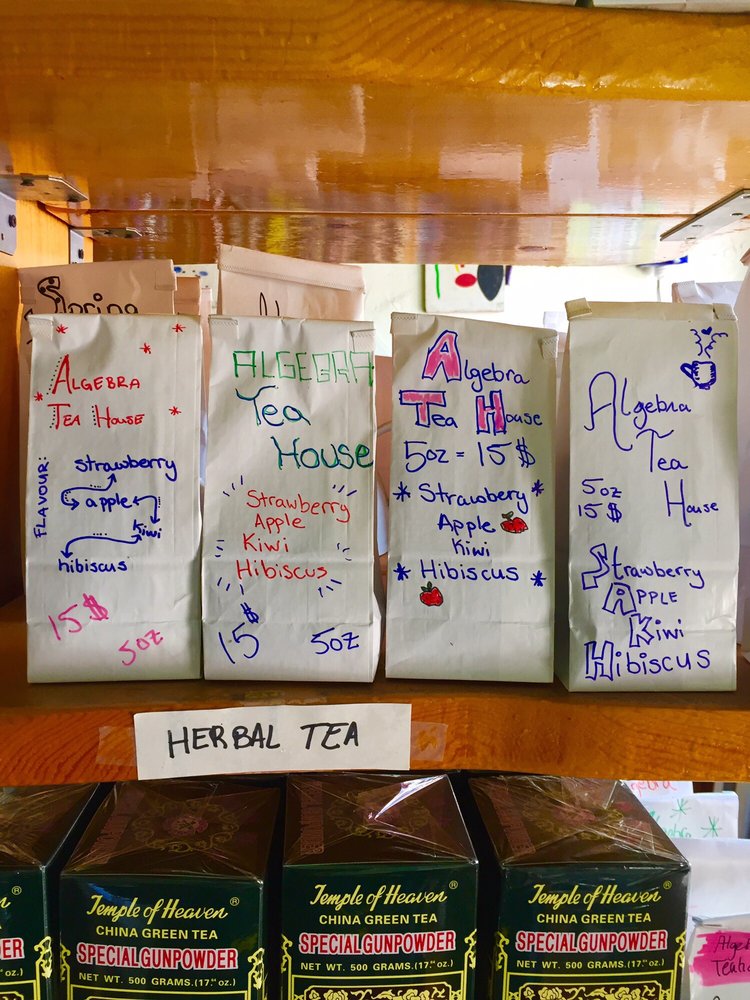 Spring
ALGEBRA
TEA HOUSE
FLAVOUR:
strawberry
apple
kiwi
hibiscus
15$
5oz
ALGEBRA
Tea
House
Strawberry
Apple
Kiwi
Hibiscus
15$ 5oz
Algebra
Tea House
5oz = 15$
Strawbery
Apple
Kiwi
Hibiscus
Algebra
Tea
House
5oz
15$
Strawberry
APPLE
Kiwi
Hibiscus
HERBAL TEA
Temple of Heaven®
CHINA GREEN TEA
SPECIAL GUNPOWDER
NET WT. 500 GRAMS.
Temple of Heaven®
CHINA GREEN TEA
SPECIAL GUNPOWDER
NET WT. 500 GRAMS.
Temple of Heaven®
CHINA GREEN TEA
SPECIAL GUNPOWDER
NET WT. 500 GRAMS.